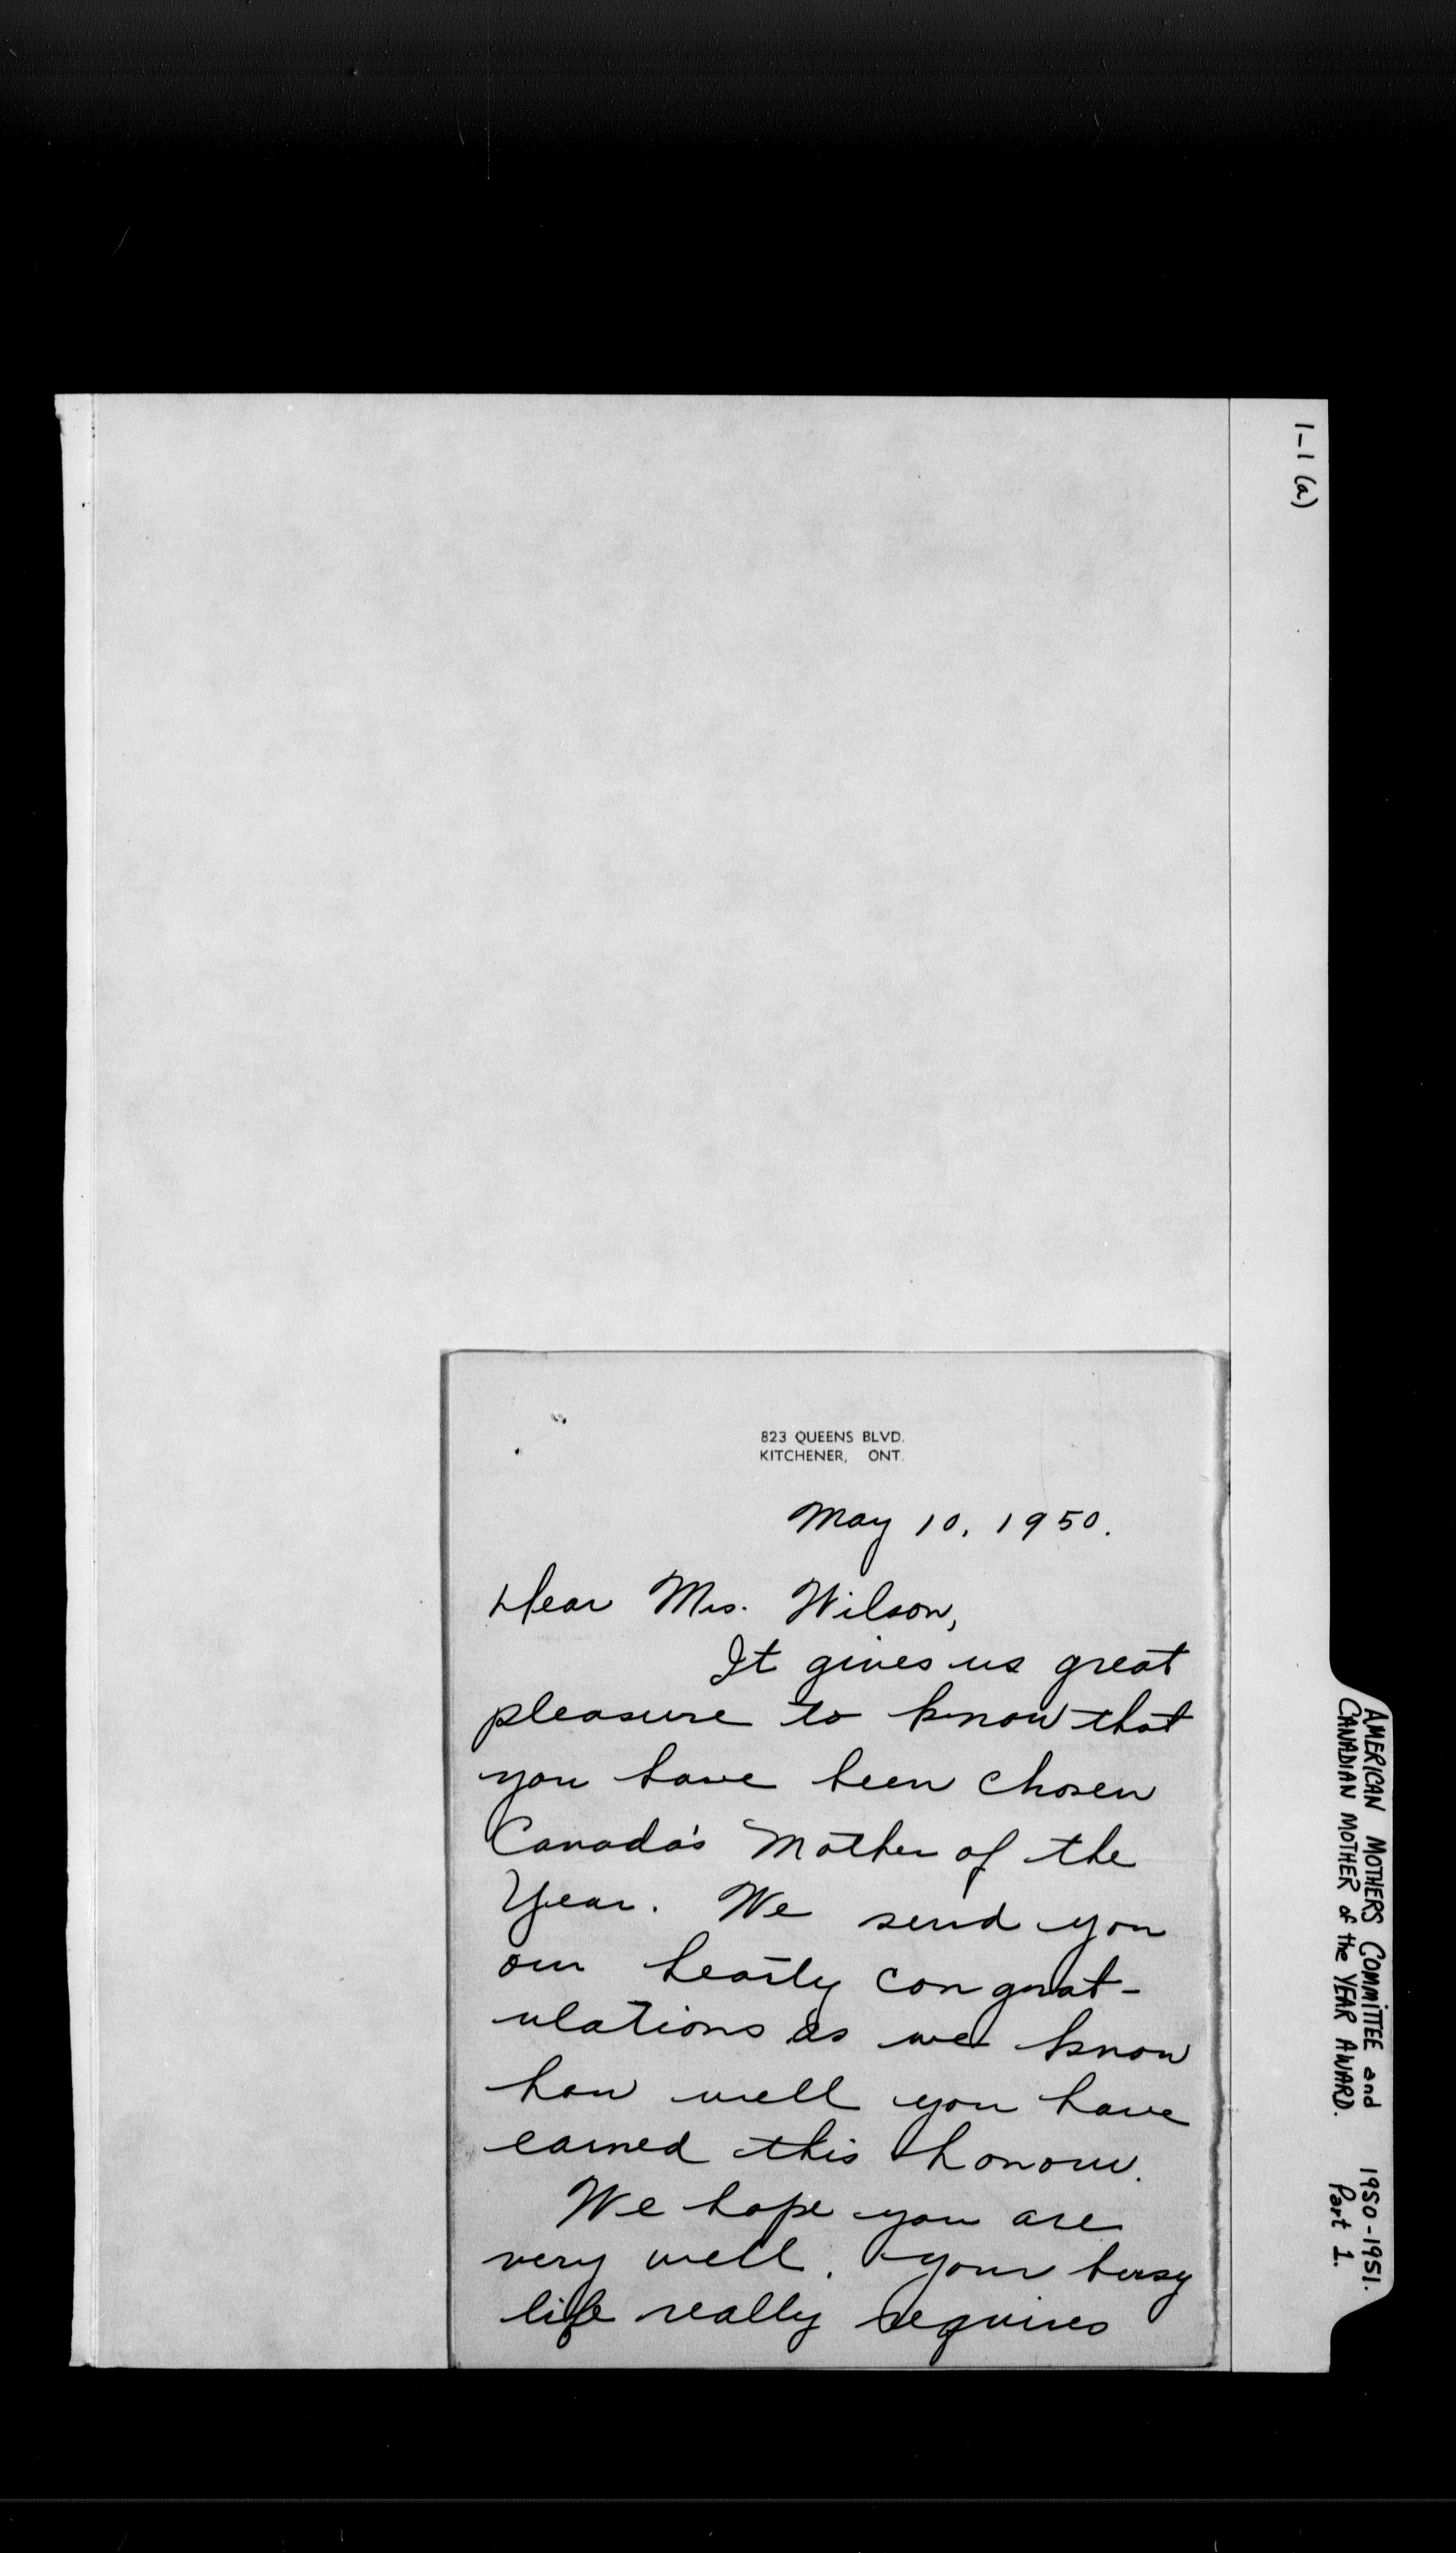 1-1 (a)
AMERICAN MOTHERS COMMITTEE and 1950-1951.
CANADIAN MOTHER of the YEAR AWARD. Part 1.
823 QUEENS BLVD.
KITCHENER, ONT.
May 10, 1950.
Dear Mrs. Wilson,
It gives us great
pleasure to know that
you have been chosen
Canada's Mother of the
Year. We send you
our hearty congrat-
ulations as we know
how well you have
earned this honour.
We hope you are
very well. Your busy
life really requires